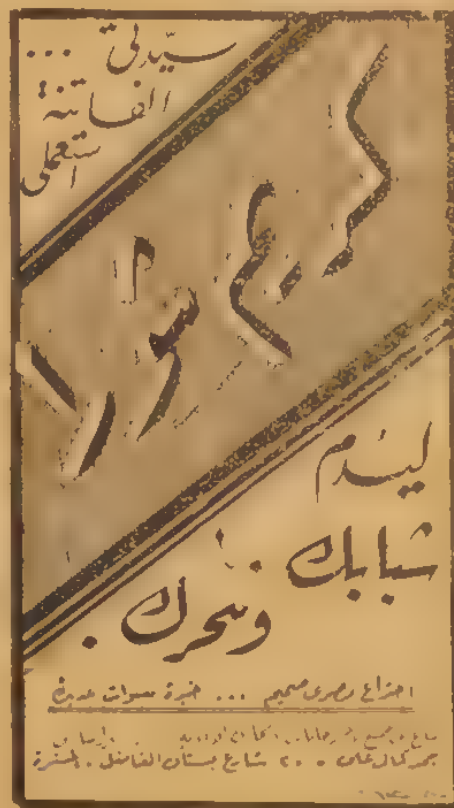 سيّدتي ...
الفاتنة
استعملي
كريم نورا
ليدم
شبابك ..
وسحرك .
اختراع مصرى صميم ... خبرة سنوات عديدة
محمد كمال على ٢٠ شارع بستان الفاضل . المنيرة